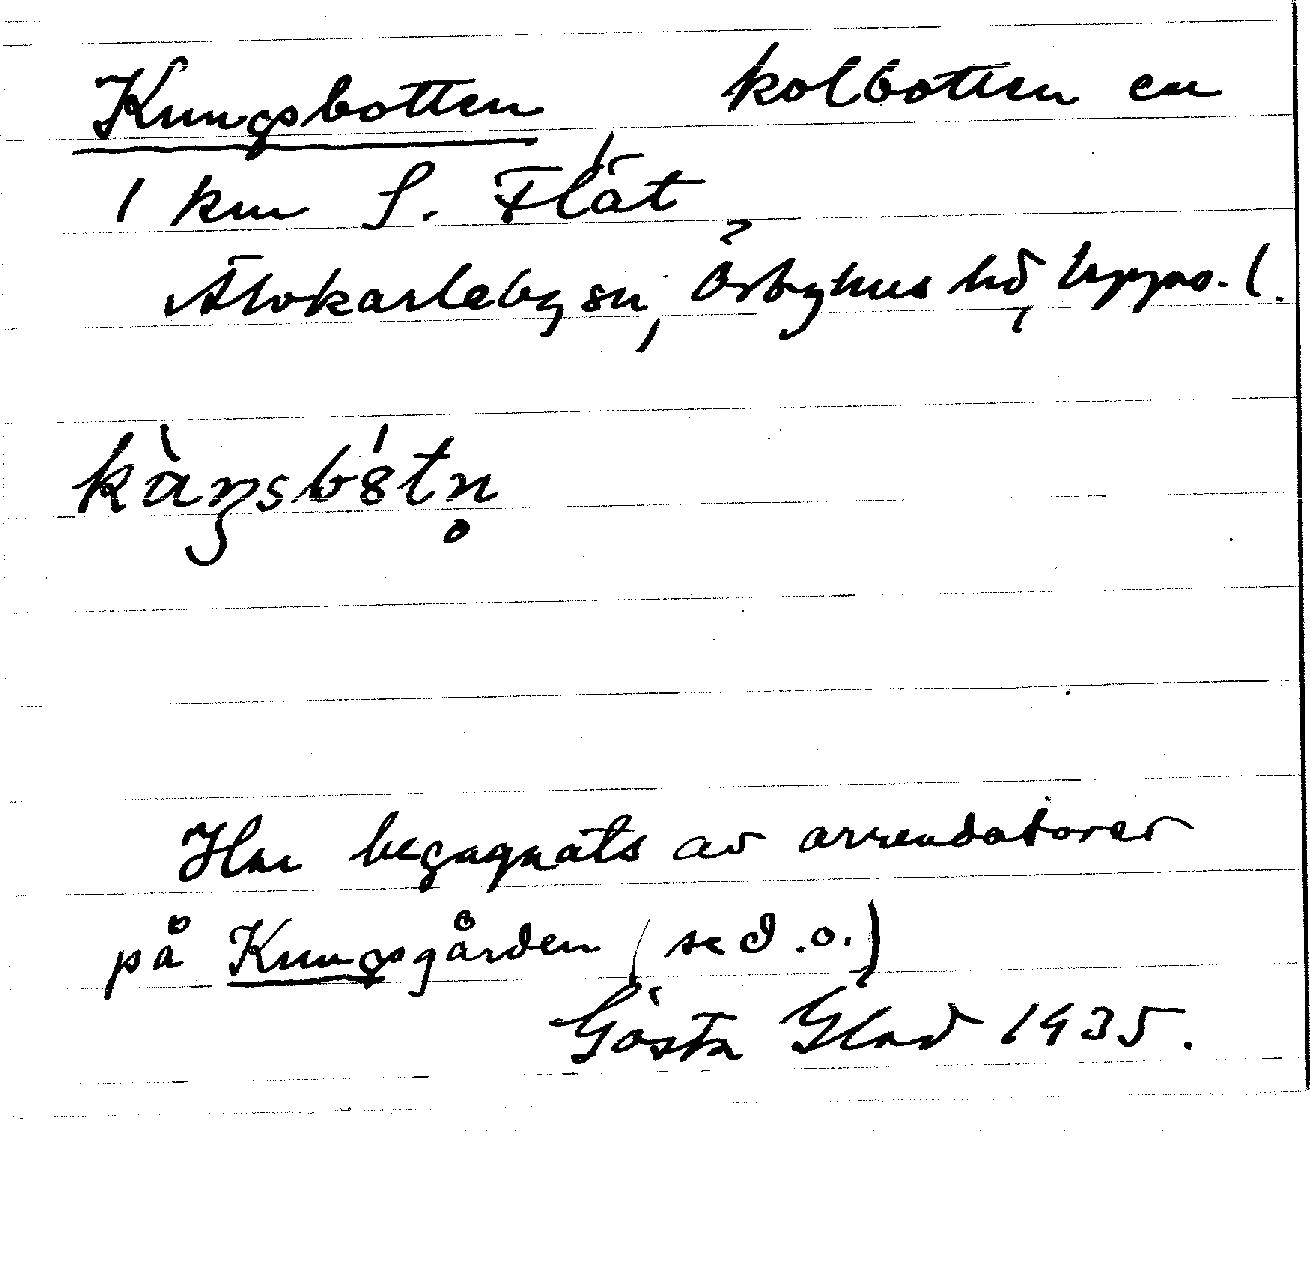 Kungsbotten kolbotten ca
1 km S. Flät
Älvkarleby sn, Örbyhus hd, Upps. l.
kàŋsbótn̥
Har begagnats av arrendatorer
på Kungsgården (se d.o.)
Gösta Glad 1935.